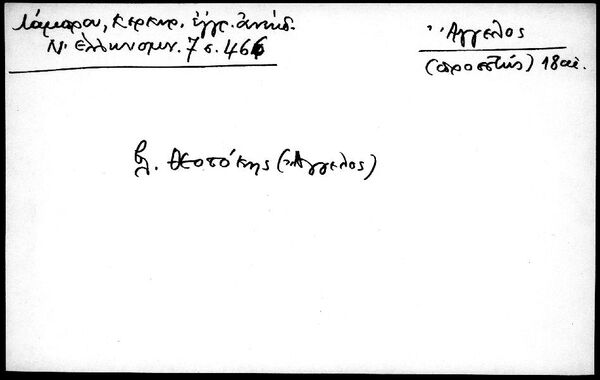 Λάμπρου, Κερκυρ. ἔγγρ. ἀνέκδ.
Ν. Ἑλληνομν. 7 σ. 466
Ἄγγελος
(προεστώς) 18 αἰ.
βλ. Θεοτόκης (Ἄγγελος)